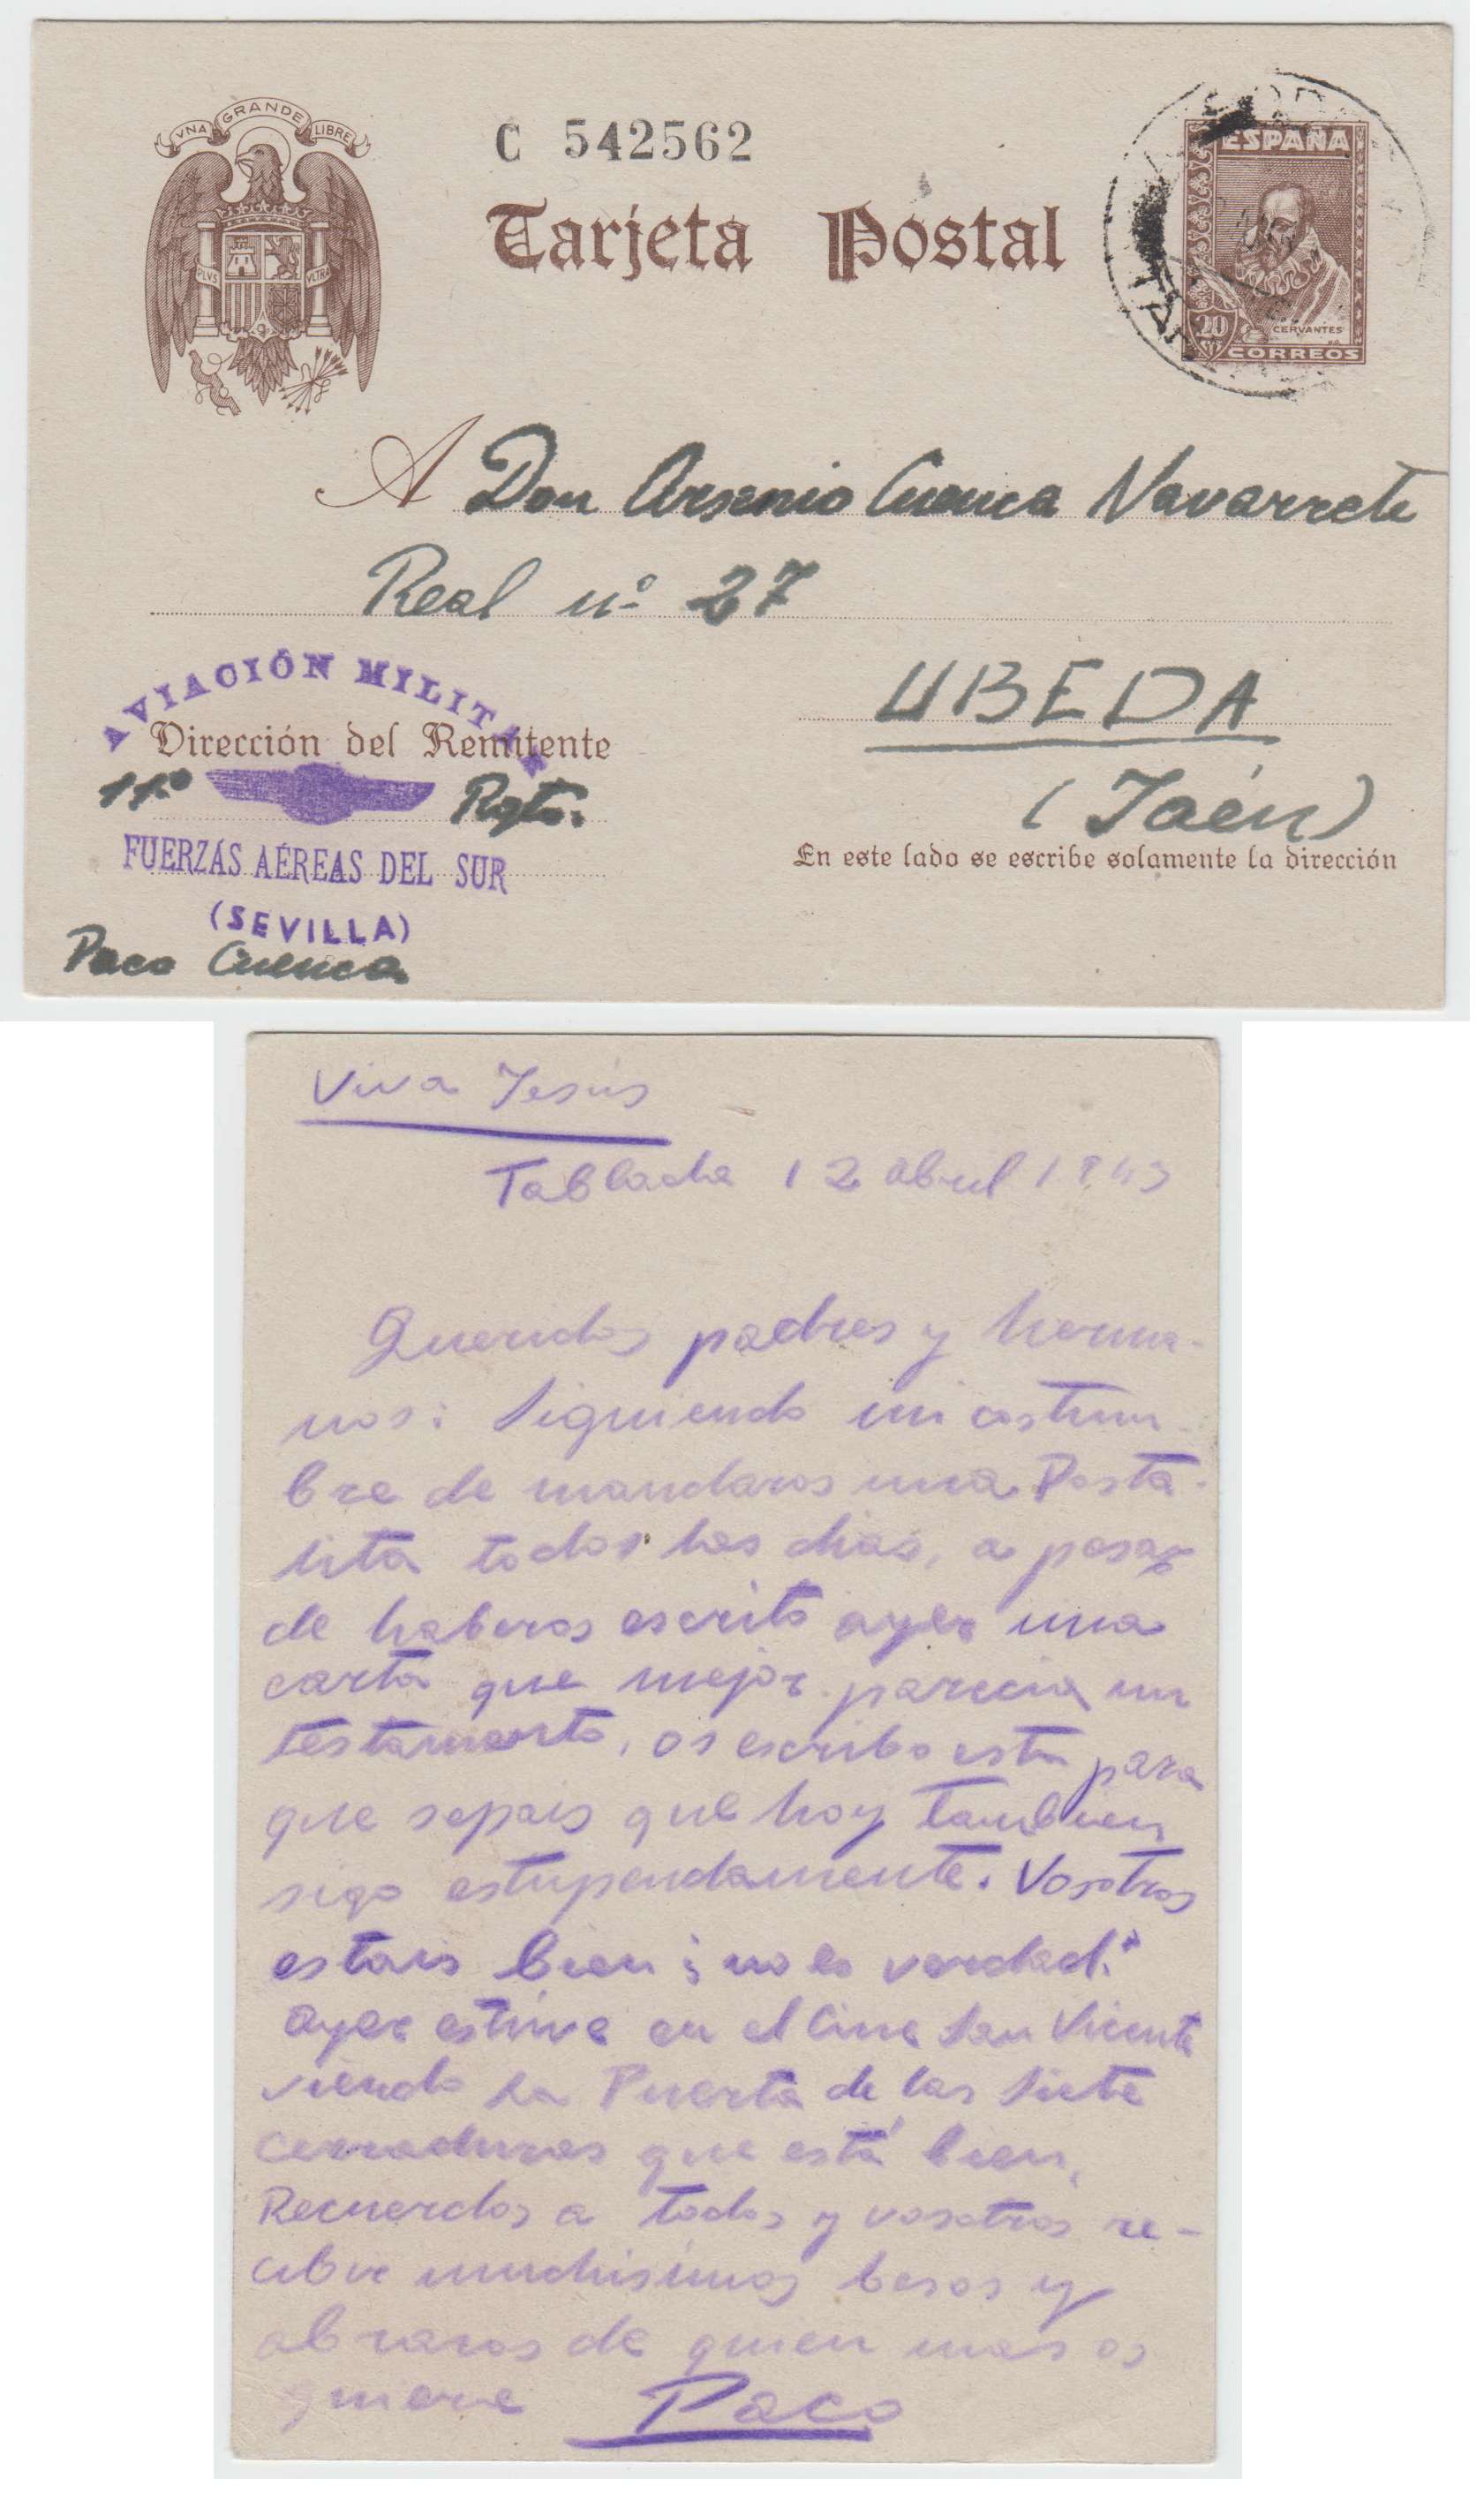 UNA GRANDE LIBRE
C 542562
Tarjeta Postal
ESPAÑA
PLVS VLTRA
20
CERVANTES
CORREOS
A Don Arsenio Cuenca Navarrete
Real nº 27
UBEDA
(Jaén)
AVIACIÓN MILITAR
Dirección del Remitente
11º Rgto.
FUERZAS AÉREAS DEL SUR
(SEVILLA)
Paco Cuenca
En este lado se escribe solamente la dirección
Viva Jesús
Tablada 12 abril 1943
Queridos padres y herma-
nos: Siguiendo mi costum-
bre de mandaros una Posta-
lita todos los dias, a pesar
de haberos escrito ayer una
carta que mejor parecia un
testamento, os escribo esta para
que sepais que hoy tambien
sigo estupendamente. Vosotros
estais bien ¿no es verdad?
Ayer estuve en el Cine San Vicente
viendo La Puerta de las Siete
cerraduras que está bien.
Recuerdos a todos y vosotros re-
cibir muchisimos besos y
abrazos de quien mas os
quiere Paco